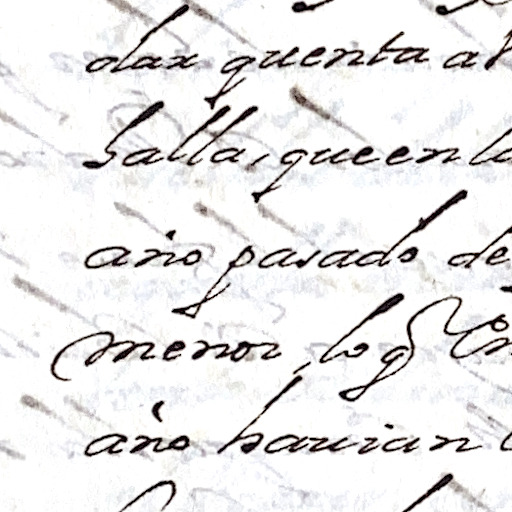 dar quenta al
halla, que en la
año pasado de
menor, lo q̃ en
año hauian